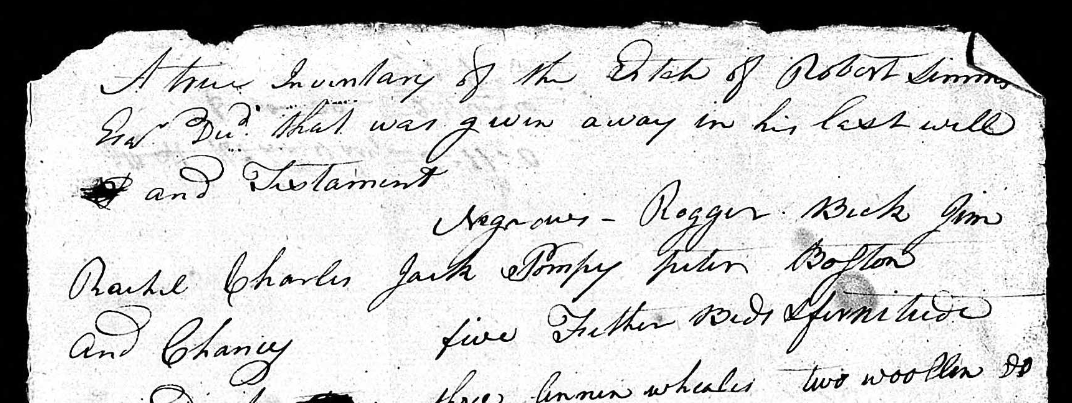 A true Inventary of the Estate of Robert Simms
Esqr Decd that was given away in his last will
and Testament
Negroues - Rogger Beck Jim
Rachel Charles Jack Pompy peter Boston
and Chancy five Fether Beds & fernitude
three linnen wheales two woollen do